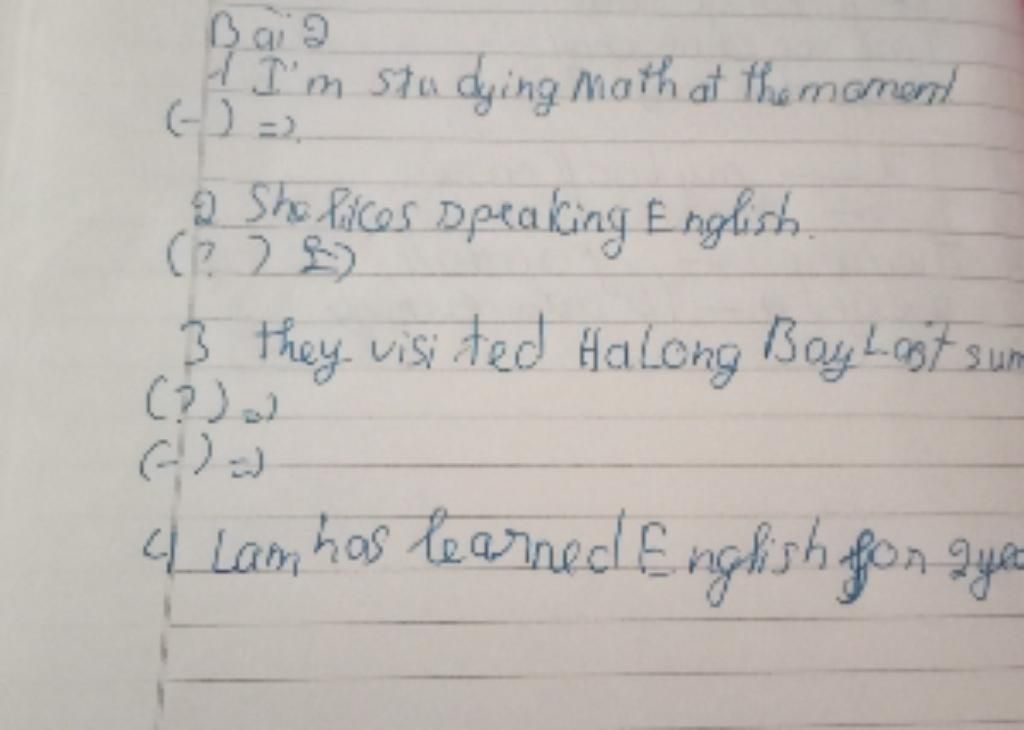 Bai 2
1 I'm studying Math at the moment
(-) =>
2 She likes speaking English.
(?) =>
3 they visited HaLong Bay Last sum
(?) =>
(-) =>
4 Lam has learned English for 2 yea